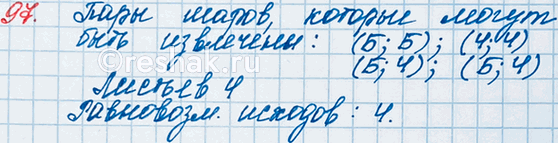 97. Пары шаров, которые могут
быть извлечены: (Б; Б); (Ч; Ч)
(Б; Ч); (Б; Ч)
Листьев 4
Равновозм. исходов: 4.
reshak.ru